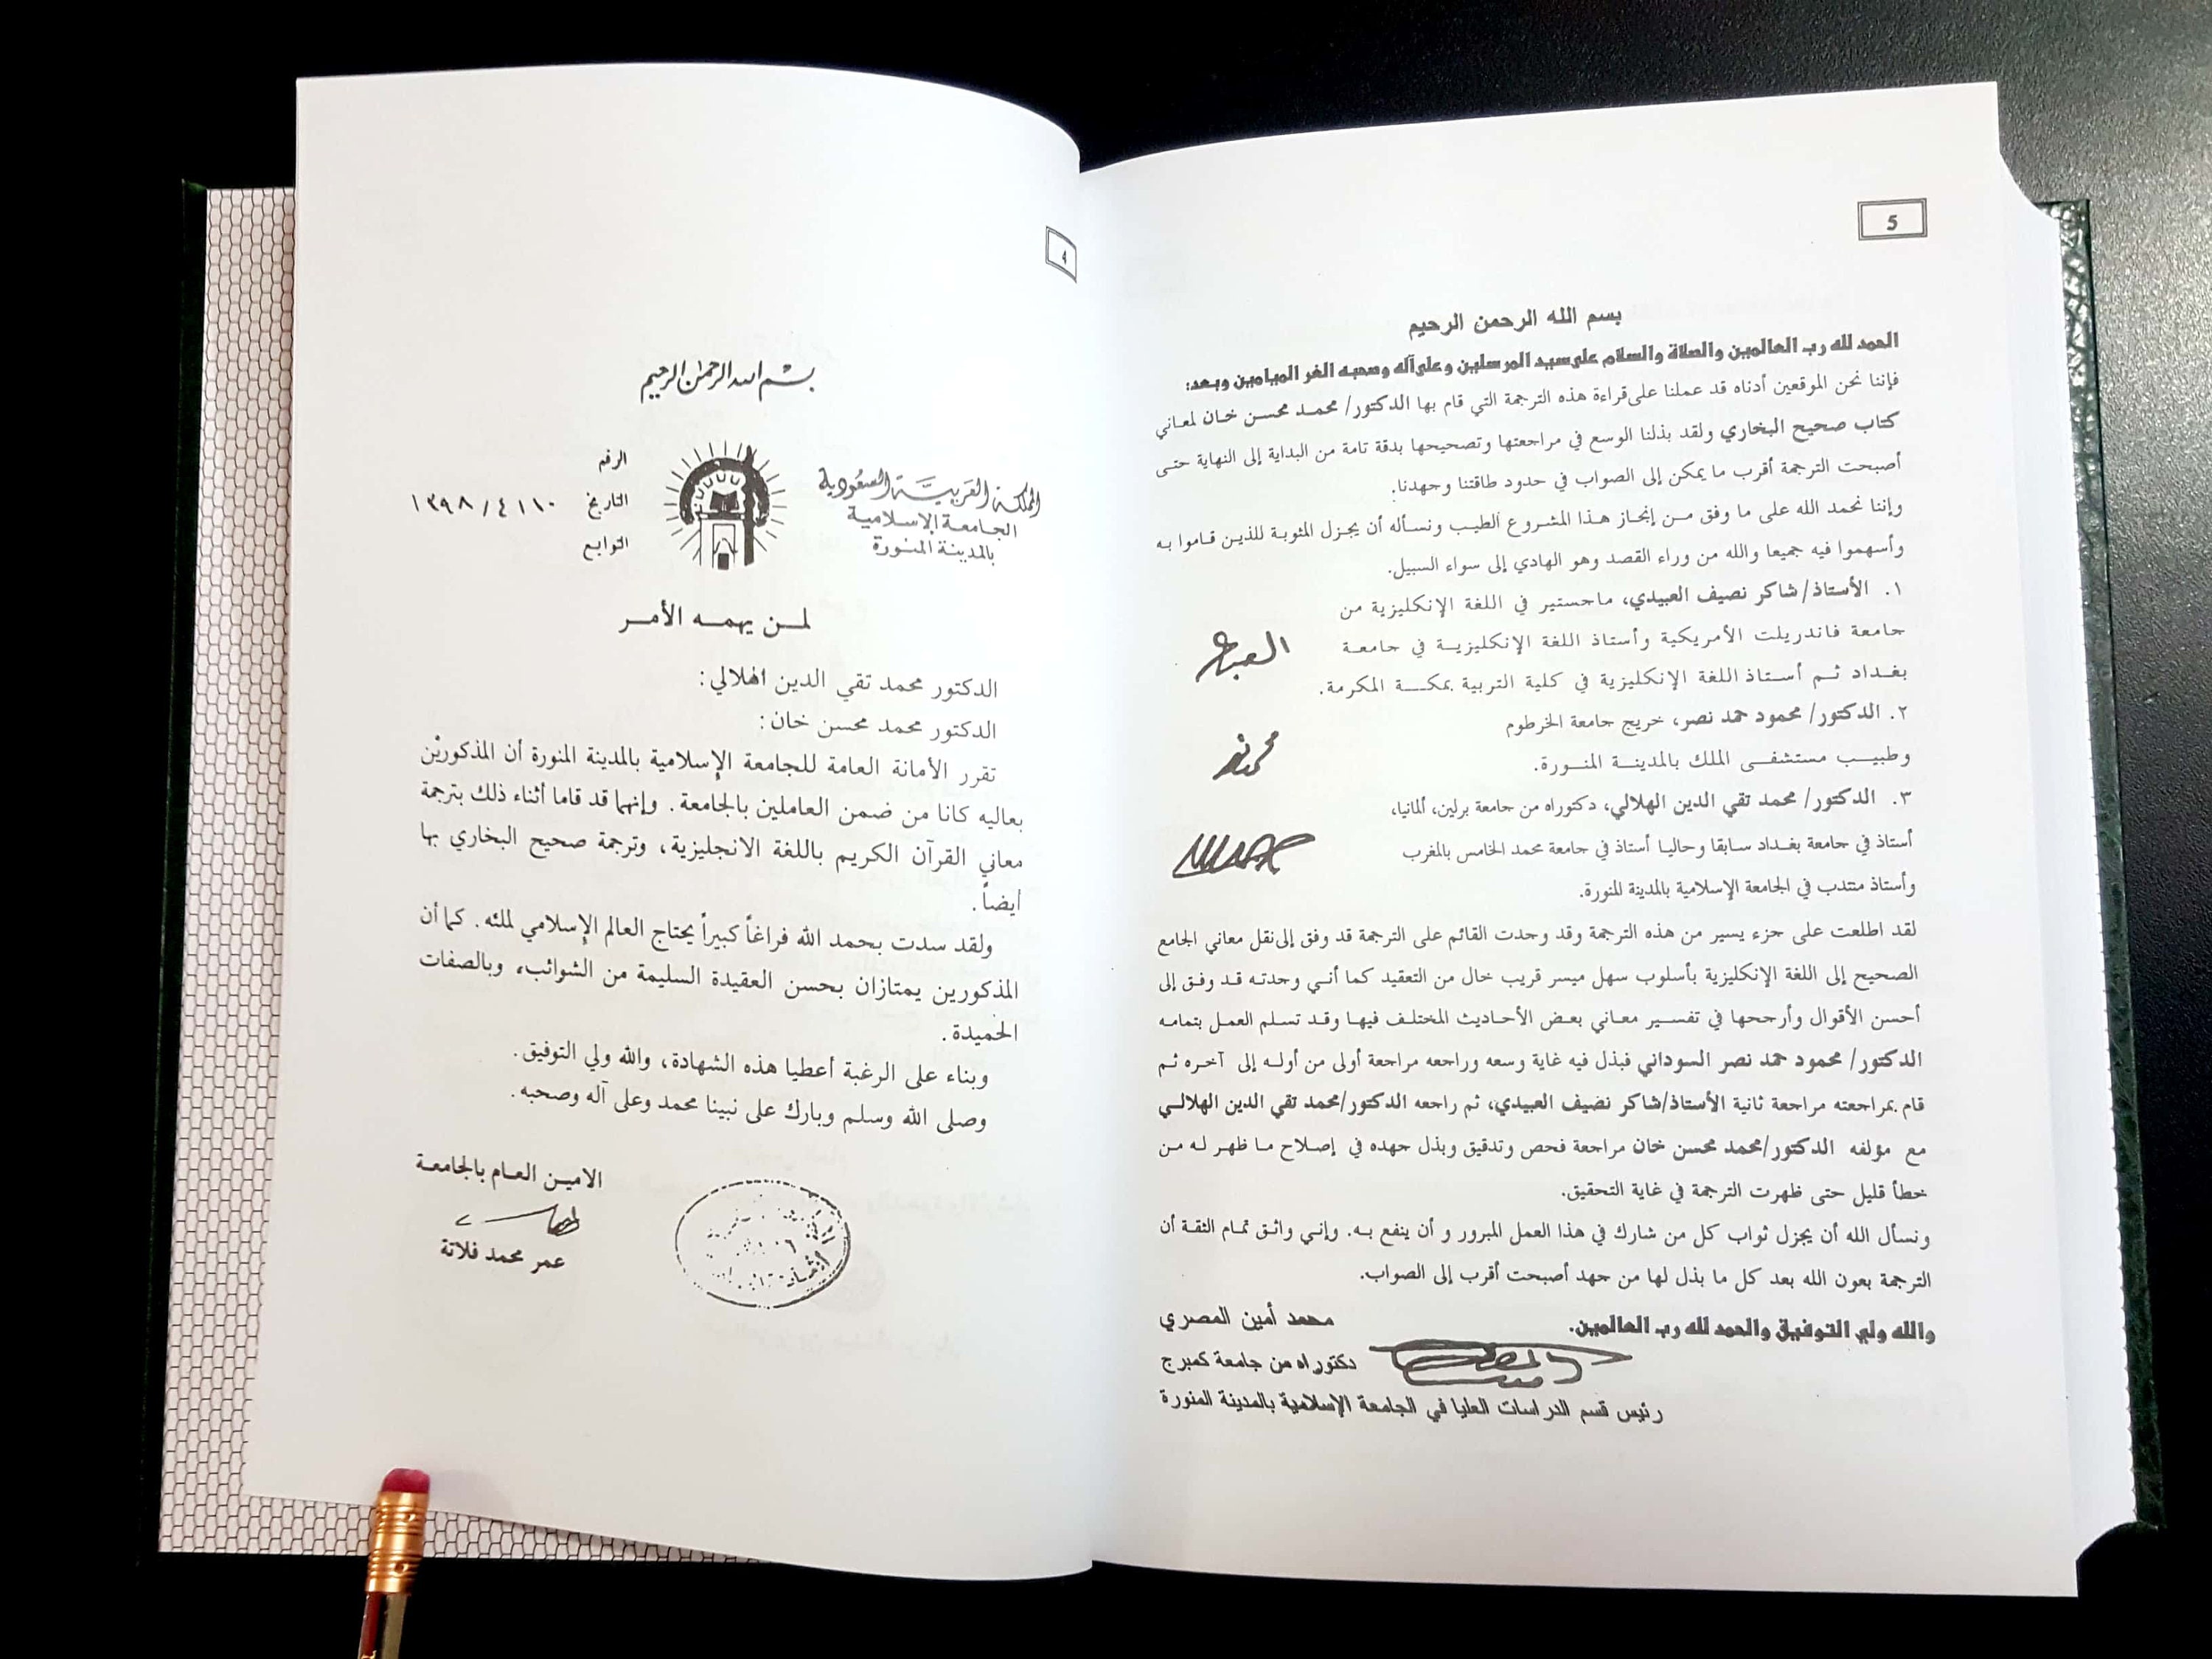 4
بسم الله الرحمن الرحيم
المملكة العربية السعودية
الجامعة الإسلامية
بالمدينة المنورة
الرقم
التاريخ ١٣٩٨/٤١١٠
التوابع
لمن يهمه الأمر
الدكتور محمد تقي الدين الهلالي:
الدكتور محمد محسن خان:
تقرر الأمانة العامة للجامعة الإسلامية بالمدينة المنورة أن المذكوريْن
بعاليه كانا من ضمن العاملين بالجامعة. وإنهما قد قاما أثناء ذلك بترجمة
معاني القرآن الكريم باللغة الانجليزية، وترجمة صحيح البخاري بها
أيضاً.
ولقد سدت بحمد الله فراغاً كبيراً يحتاج العالم الإسلامي لملئه. كما أن
المذكورين يمتازان بحسن العقيدة السليمة من الشوائب، وبالصفات
الحميدة.
وبناء على الرغبة أعطيا هذه الشهادة، والله ولي التوفيق.
وصلى الله وسلم وبارك على نبينا محمد وعلى آله وصحبه.
الامين العام بالجامعة
عمر محمد فلاتة
5
بسم الله الرحمن الرحيم
الحمد لله رب العالمين والصلاة والسلام على سيد المرسلين وعلى آله وصحبه الغر الميامين وبعد:
فإننا نحن الموقعين أدناه قد عملنا على قراءة هذه الترجمة التي قام بها الدكتور/ محمد محسن خان لمعاني
كتاب صحيح البخاري ولقد بذلنا الوسع في مراجعتها وتصحيحها بدقة تامة من البداية إلى النهاية حتى
أصبحت الترجمة أقرب ما يمكن إلى الصواب في حدود طاقتنا وجهدنا.
وإننا نحمد الله على ما وفق من إنجاز هذا المشروع الطيب ونسأله أن يجزل المثوبة للذين قاموا به
وأسهموا فيه جميعا والله من وراء القصد وهو الهادي إلى سواء السبيل.
١. الأستاذ/ شاكر نصيف العبيدي، ماجستير في اللغة الإنكليزية من
جامعة فاندريلت الأمريكية وأستاذ اللغة الإنكليزية في جامعة
بغداد ثم أستاذ اللغة الإنكليزية في كلية التربية بمكة المكرمة.
٢. الدكتور/ محمود حمد نصر، خريج جامعة الخرطوم
وطبيب مستشفى الملك بالمدينة المنورة.
٣. الدكتور/ محمد تقي الدين الهلالي، دكتوراه من جامعة برلين، ألمانيا،
أستاذ في جامعة بغداد سابقا وحاليا أستاذ في جامعة محمد الخامس بالمغرب
وأستاذ منتدب في الجامعة الإسلامية بالمدينة المنورة.
لقد اطلعت على جزء يسير من هذه الترجمة وقد وجدت القائم على الترجمة قد وفق إلى نقل معاني الجامع
الصحيح إلى اللغة الإنكليزية بأسلوب سهل ميسر قريب خال من التعقيد كما أني وجدته قد وفق إلى
أحسن الأقوال وأرجحها في تفسير معاني بعض الأحاديث المختلف فيها وقد تسلم العمل بتمامه
الدكتور/ محمود حمد نصر السوداني فبذل فيه غاية وسعه وراجعه مراجعة أولى من أوله إلى آخره ثم
قام بمراجعته مراجعة ثانية الأستاذ/شاكر نصيف العبيدي، ثم راجعه الدكتور/محمد تقي الدين الهلالي
مع مؤلفه الدكتور/محمد محسن خان مراجعة فحص وتدقيق وبذل جهده في إصلاح ما ظهر له من
خطأ قليل حتى ظهرت الترجمة في غاية التحقيق.
ونسأل الله أن يجزل ثواب كل من شارك في هذا العمل المبرور و أن ينفع به. وإني واثق تمام الثقة أن
الترجمة بعون الله بعد كل ما بذل لها من جهد أصبحت أقرب إلى الصواب.
والله ولي التوفيق والحمد لله رب العالمين.
محمد أمين المصري
دكتوراه من جامعة كمبرج
رئيس قسم الدراسات العليا في الجامعة الإسلامية بالمدينة المنورة